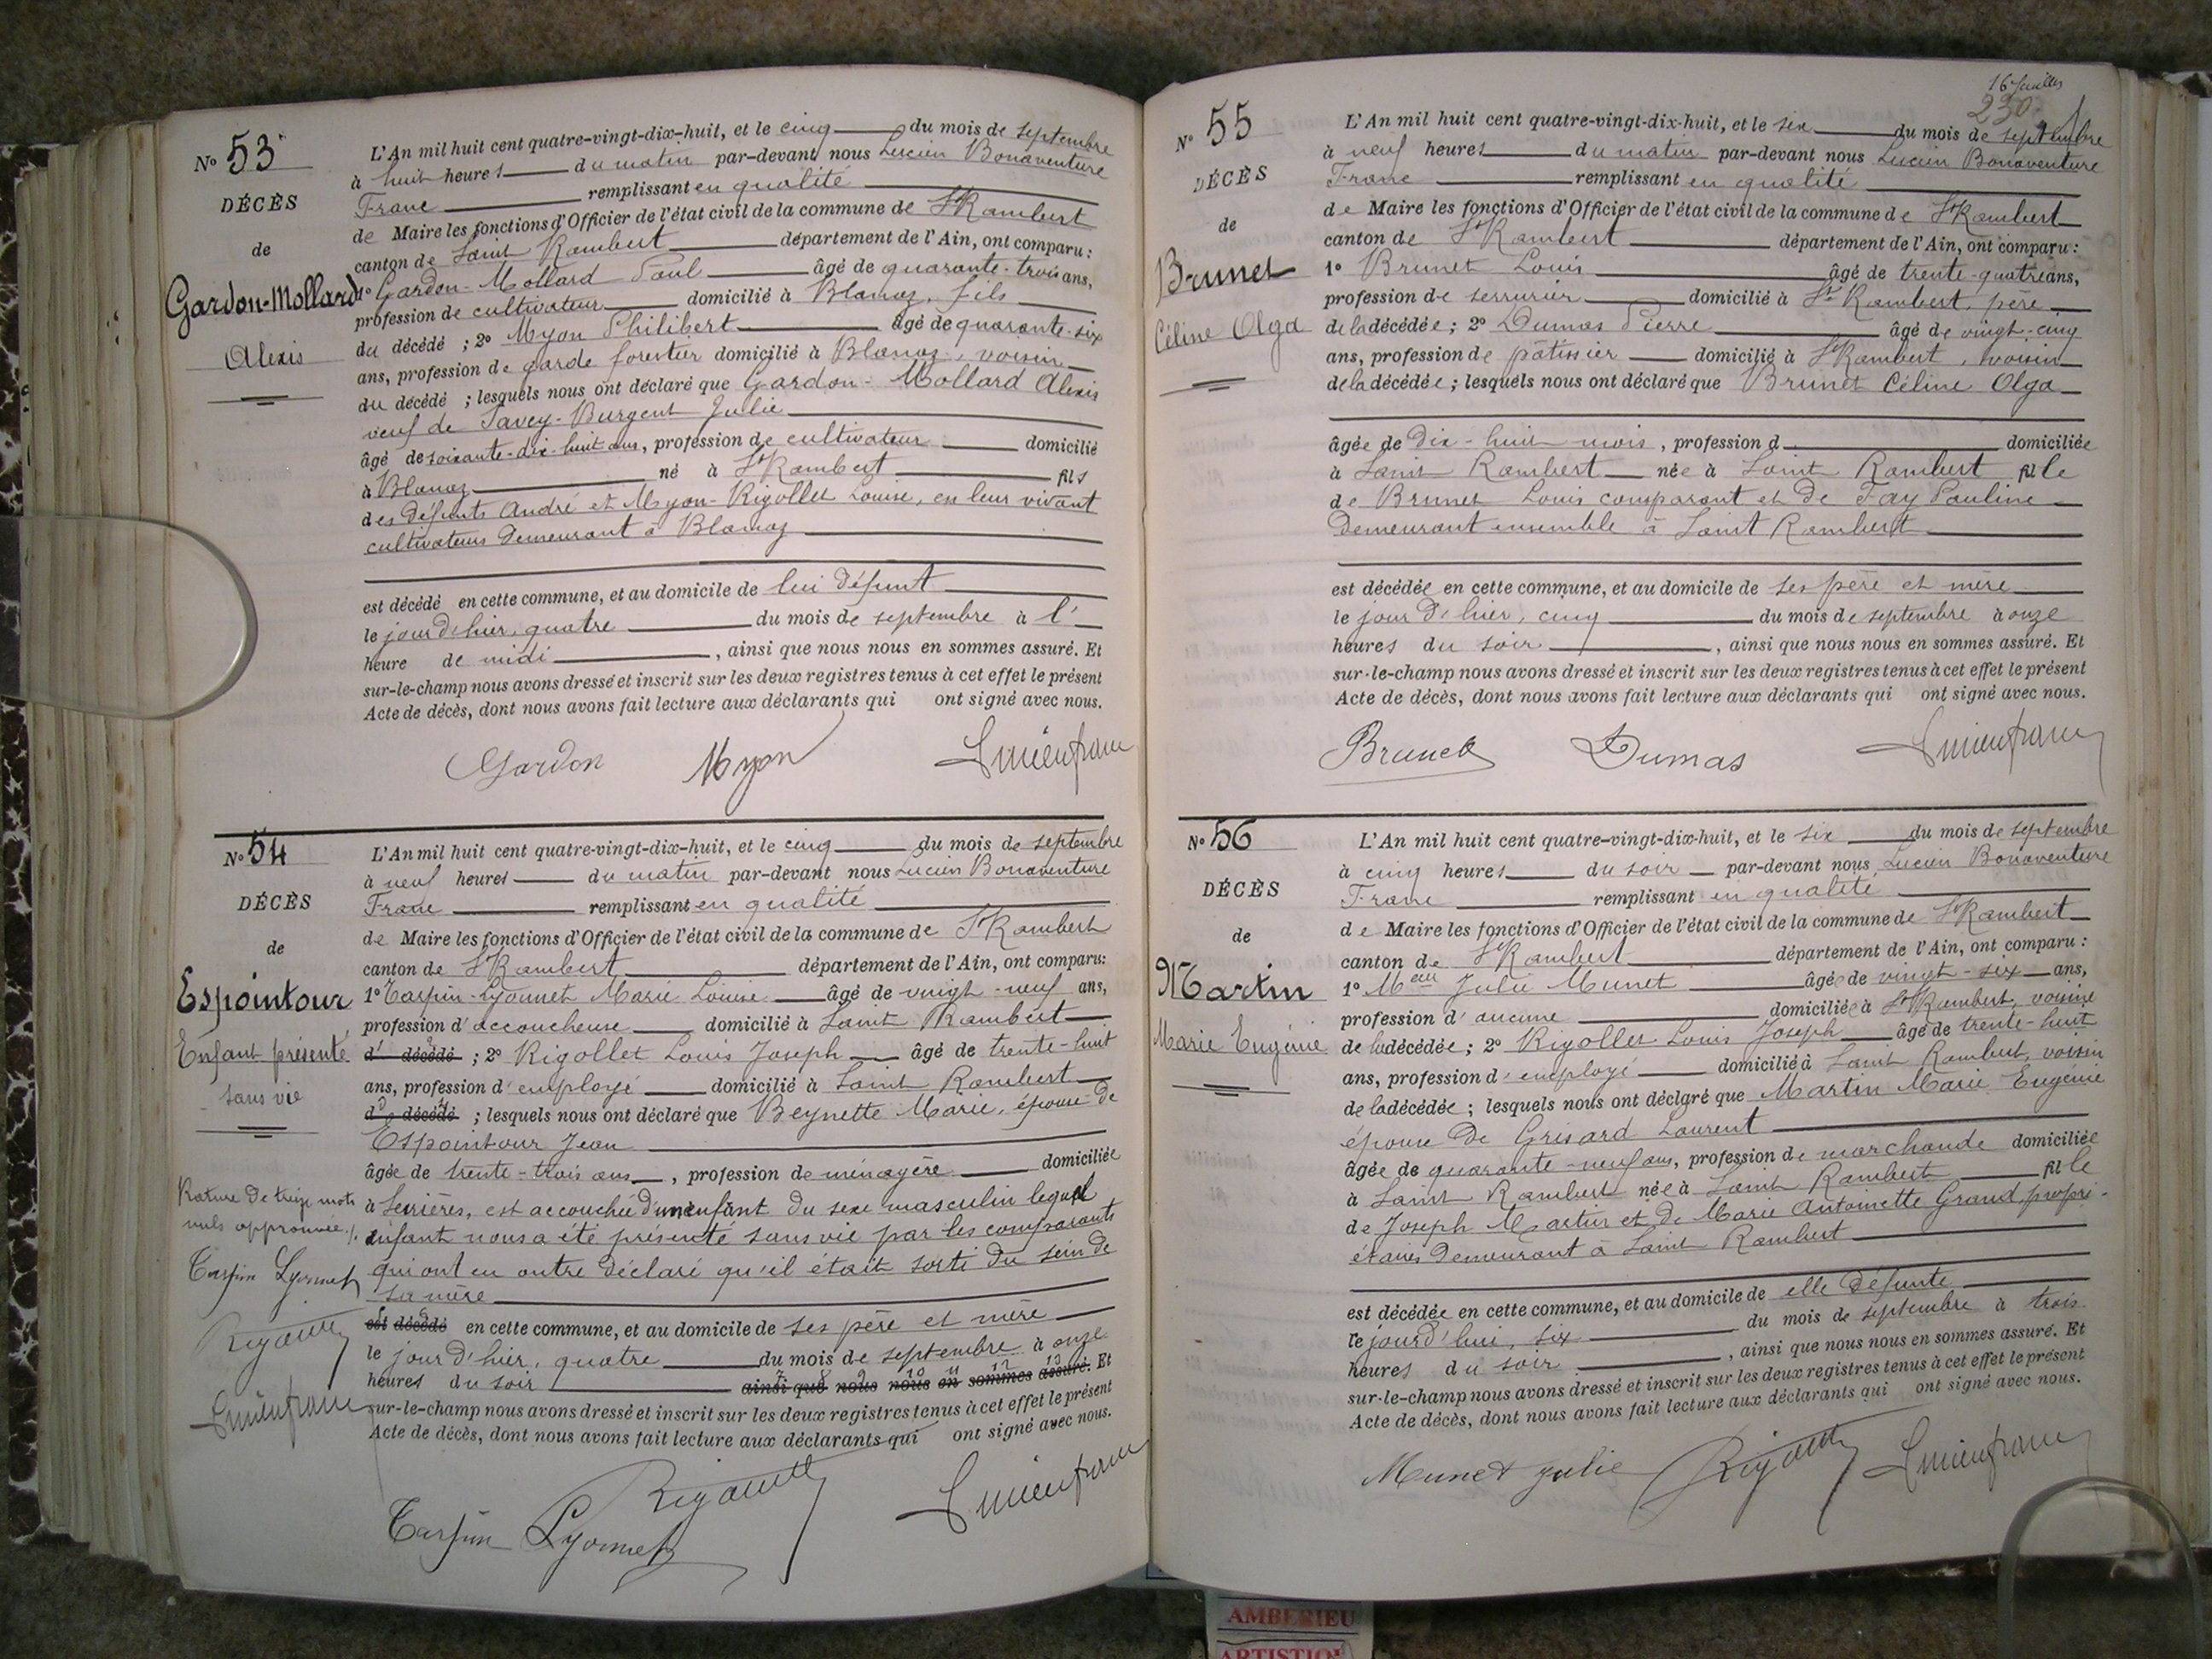 N° 53
DÉCÈS
de
Gardon-Mollard
Alexis
L'An mil huit cent quatre-vingt-dix-huit, et le cinq du mois de septembre
à huit heures du matin par-devant nous Lucien Bonaventure
Franc remplissant en qualité
de Maire les fonctions d'Officier de l'état civil de la commune de St Rambert
canton de Saint Rambert département de l'Ain, ont comparu :
1° Gardon-Mollard Paul âgé de quarante-trois ans,
profession de cultivateur domicilié à Blanaz, fils
du décédé ; 2° Myon Philibert âgé de quarante-six
ans, profession de garde forestier domicilié à Blanaz, voisin
du décédé ; lesquels nous ont déclaré que Gardon-Mollard Alexis
veuf de Savey-Burgent Julie
âgé de soixante-dix-huit ans, profession de cultivateur domicilié
à Blanaz né à St Rambert fils
des défunts André et Myon-Rigollet Louise, en leur vivant
cultivateurs demeurant à Blanaz
est décédé en cette commune, et au domicile de lui défunt
le jour d'hier, quatre du mois de septembre à l'
heure de midi , ainsi que nous nous en sommes assuré. Et
sur-le-champ nous avons dressé et inscrit sur les deux registres tenus à cet effet le présent
Acte de décès, dont nous avons fait lecture aux déclarants qui ont signé avec nous.
Gardon Myon Lucien franc
N° 54
DÉCÈS
de
Espointour
Enfant présenté
sans vie
Rature de treize mots
nuls approuvée ./.
Tarpin Lyonnet
Lucien franc
L'An mil huit cent quatre-vingt-dix-huit, et le cinq du mois de septembre
à neuf heures du matin par-devant nous Lucien Bonaventure
Franc remplissant en qualité
de Maire les fonctions d'Officier de l'état civil de la commune de St Rambert
canton de St Rambert département de l'Ain, ont comparu :
1° Tarpin-Lyonnet Marie Louise âgé de vingt-neuf ans,
profession d'accoucheuse domicilié à Saint Rambert
d décédé ; 2° Rigollet Louis Joseph âgé de trente-huit
ans, profession d'employé domicilié à Saint Rambert
d décédé ; lesquels nous ont déclaré que Beynette Marie, épouse de
Espointour Jean
âgée de trente-trois ans , profession de ménagère domiciliée
à Serrières, est accouchée d'un enfant du sexe masculin lequel
enfant nous a été présenté sans vie par les comparants
qui ont en outre déclaré qu'il était sorti du sein de
sa mère
est décédé en cette commune, et au domicile de ses père et mère
le jour d'hier, quatre du mois de septembre à onze
heures du soir ainsi que nous nous en sommes assuré. Et
sur-le-champ nous avons dressé et inscrit sur les deux registres tenus à cet effet le présent
Acte de décès, dont nous avons fait lecture aux déclarants qui ont signé avec nous.
Tarpin Lyonnet Lucien franc
16 feuilles
230
N° 55
DÉCÈS
de
Brunet
Céline Olga
L'An mil huit cent quatre-vingt-dix-huit, et le six du mois de septembre
à neuf heures du matin par-devant nous Lucien Bonaventure
Franc remplissant en qualité
de Maire les fonctions d'Officier de l'état civil de la commune de St Rambert
canton de St Rambert département de l'Ain, ont comparu :
1° Brunet Louis âgé de trente-quatre ans,
profession de serrurier domicilié à St Rambert, père
de la décédée ; 2° Dumas Pierre âgé de vingt-cinq
ans, profession de pâtissier domicilié à St Rambert, voisin
de la décédée ; lesquels nous ont déclaré que Brunet Céline Olga
âgée de dix-huit mois , profession d domiciliée
à Saint Rambert née à Saint Rambert fille
de Brunet Louis comparant et de Fay Pauline
demeurant ensemble à Saint Rambert
est décédée en cette commune, et au domicile de ses père et mère
le jour d'hier, cinq du mois de septembre à onze
heures du soir , ainsi que nous nous en sommes assuré. Et
sur-le-champ nous avons dressé et inscrit sur les deux registres tenus à cet effet le présent
Acte de décès, dont nous avons fait lecture aux déclarants qui ont signé avec nous.
Brunet Dumas Lucien franc
N° 56
DÉCÈS
de
Martin
Marie Eugénie
L'An mil huit cent quatre-vingt-dix-huit, et le six du mois de septembre
à cinq heures du soir par-devant nous Lucien Bonaventure
Franc remplissant en qualité
de Maire les fonctions d'Officier de l'état civil de la commune de St Rambert
canton de St Rambert département de l'Ain, ont comparu :
1° Melle Julie Munet âgée de vingt-six ans,
profession d'aucune domiciliée à St Rambert, voisine
de la décédée ; 2° Rigollet Louis Joseph âgé de trente-huit
ans, profession d'employé domicilié à Saint Rambert, voisin
de la décédée ; lesquels nous ont déclaré que Martin Marie Eugénie
épouse de Grisard Laurent
âgée de quarante-neuf ans, profession de marchande domiciliée
à Saint Rambert née à Saint Rambert fille
de Joseph Martin et de Marie Antoinette Grand propri-
étaires demeurant à Saint Rambert
est décédée en cette commune, et au domicile de elle défunte
le jourd'hui, six du mois de septembre à trois
heures du soir , ainsi que nous nous en sommes assuré. Et
sur-le-champ nous avons dressé et inscrit sur les deux registres tenus à cet effet le présent
Acte de décès, dont nous avons fait lecture aux déclarants qui ont signé avec nous.
Munet Julie Lucien franc
AMBERIEU